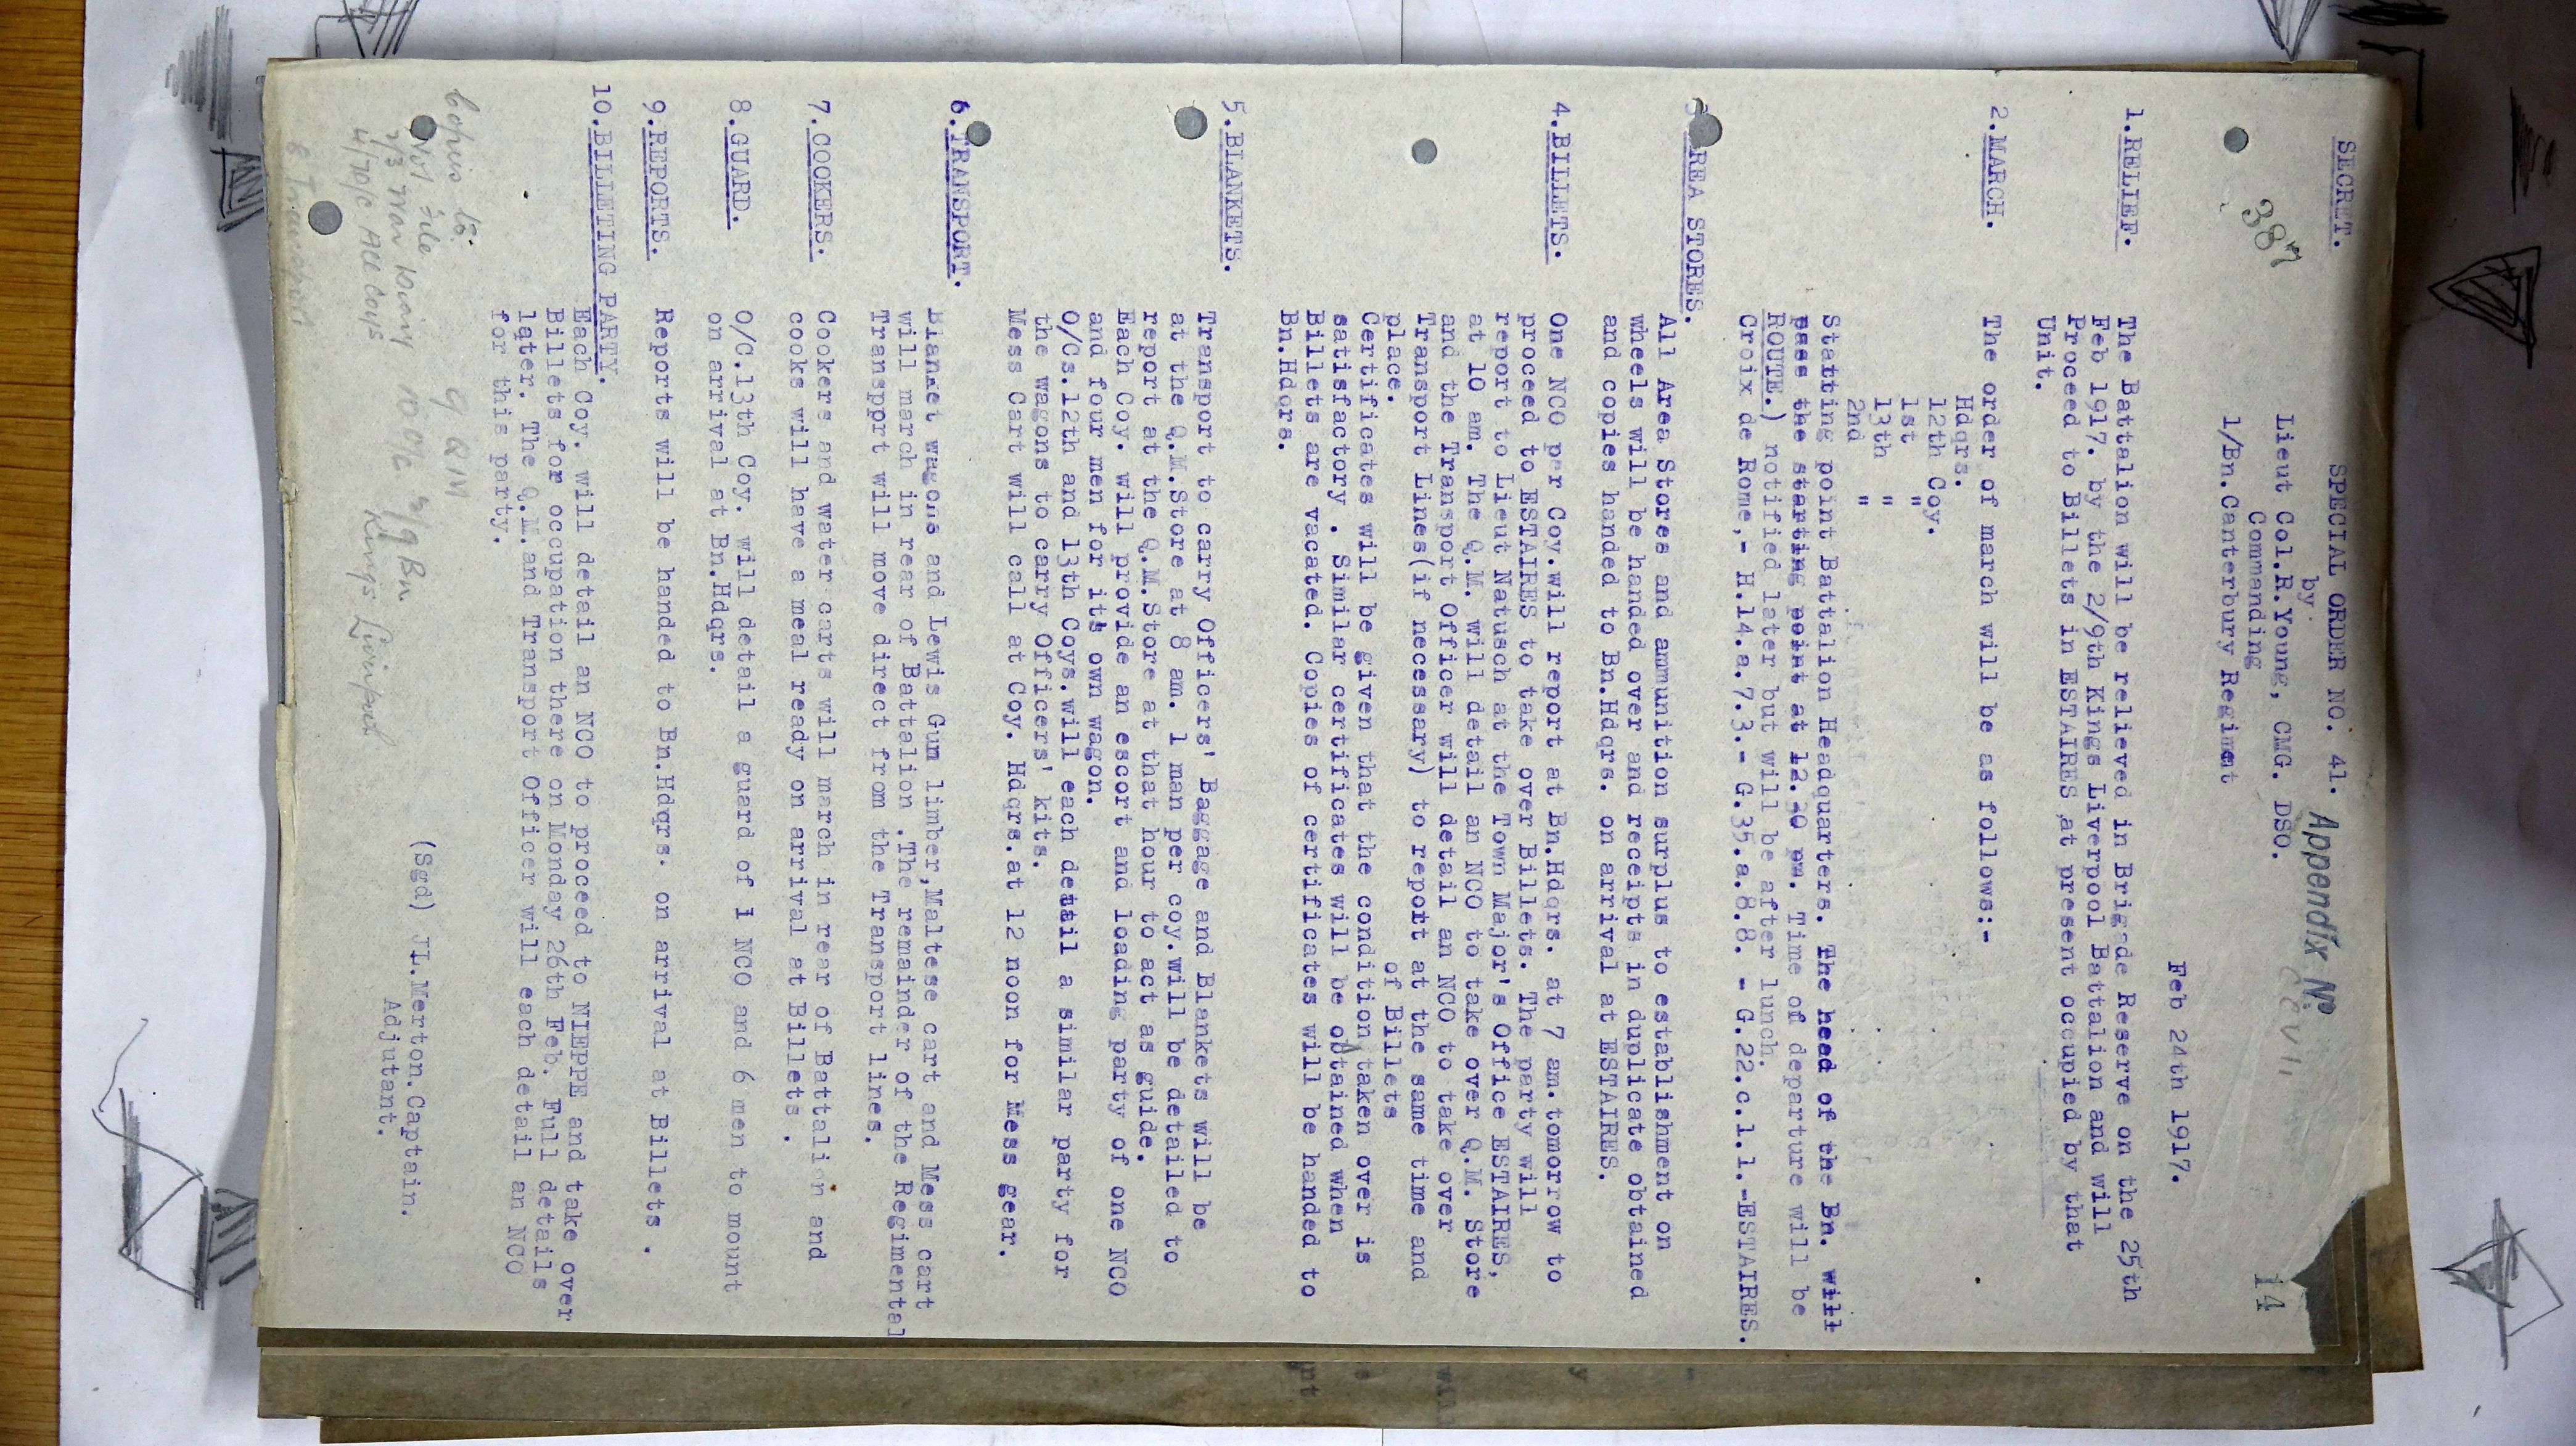 SECRET.
SPECIAL ORDER NO. 41. Appendix No
by
387
Lieut Col.R.Young, CMG. DSO.
Commanding
14
1/Bn.Canterbury Regiment
Feb 24th 1917.
1.RELIEF. The Battalion will be relieved in Brigade Reserve on the 25th
Feb 1917. by the 2/9th Kings Liverpool Battalion and will
Proceed to Billets in ESTAIRES ,at present occupied by that
Unit.
2.MARCH. The order of march will be as follows:-
Hdqrs.
12th Coy.
1st "
13th "
2nd "
Starting point Battalion Headquarters. The head of the Bn. will
pass the starting point at 12.30 pm. Time of departure will be
ROUTE.) notified later but will be after lunch.
Croix de Rome,- H.14.a.7.3.- G.35.a.8.8. - G.22.c.1.1.-ESTAIRES.
REA STORES.
All Area Stores and ammunition surplus to establishment on
wheels will be handed over and receipts in duplicate obtained
and copies handed to Bn.Hdqrs. on arrival at ESTAIRES.
4.BILLETS. One NCO per Coy.will report at Bn.Hdqrs. at 7 am.tomorrow to
proceed to ESTAIRES to take over Billets. The party will
report to Lieut Natusch at the Town Major's Office ESTAIRES,
at 10 am. The Q.M. will detail an NCO to take over Q.M. Store
and the Transport Officer will detail an NCO to take over
Transport Lines(if necessary) to report at the same time and
place. of Billets
Certificates will be given that the condition taken over is
satisfactory . Similar certificates will be obtained when
Billets are vacated. Copies of certificates will be handed to
Bn.Hdqrs.
5.BLANKETS.
Transport to carry Officers' Baggage and Blankets will be
at the Q.M.Store at 8 am. 1 man per coy.will be detailed to
report at the Q.M.Store at that hour to act as guide.
Each Coy. will provide an escort and loading party of one NCO
and four men for its own wagon.
O/Cs.12th and 13th Coys.will each detail a similar party for
the wagons to carry Officers' kits.
Mess Cart will call at Coy. Hdqrs.at 12 noon for Mess gear.
6.TRANSPORT.
Blanket wagons and Lewis Gun limber,Maltese cart and Mess cart
will march in rear of Battalion .The remainder of the Regimental
Transport will move direct from the Transport lines.
7.COOKERS. Cookers and water carts will march in rear of Battalion and
cooks will have a meal ready on arrival at Billets .
8.GUARD. O/C.13th Coy. will detail a guard of 1 NCO and 6 men to mount
on arrival at Bn.Hdqrs.
9.REPORTS. Reports will be handed to Bn.Hdqrs. on arrival at Billets .
10.BILLETING PARTY.
Each Coy. will detail an NCO to proceed to NIEPPE and take over
Billets for occupation there on Monday 26th Feb. Full details
later. The Q.M.and Transport Officer will each detail an NCO
for this party.
Copies to:
No1 File 9 QM
2/3 War Diary 10 O/C 2/9 Bn
4/7 O/C All Coys Kings Liverpool
8 Transport
(Sgd) JL.Merton.Captain.
Adjutant.